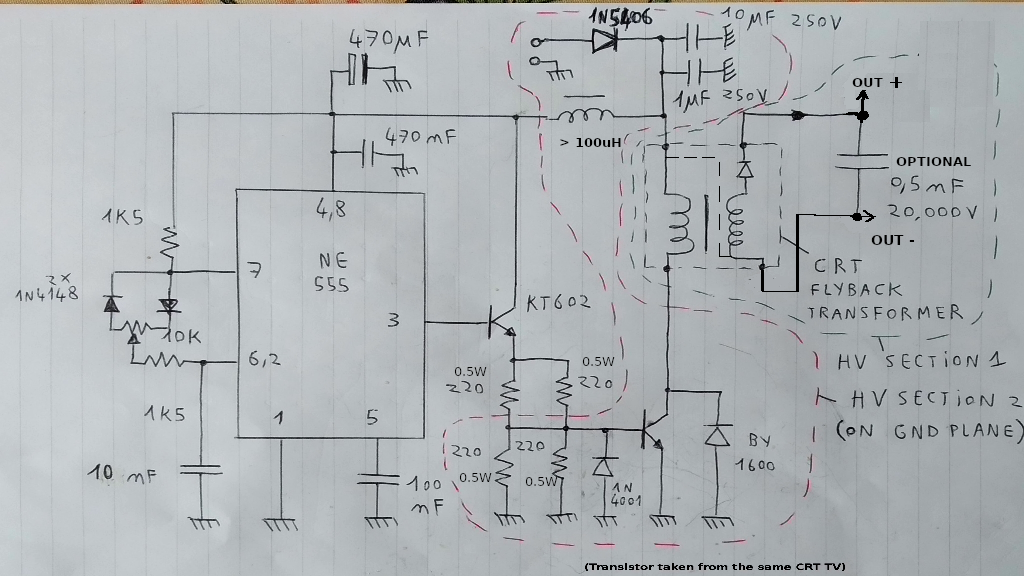 1N5406
10µF 250V
470µF
OUT +
1µF 250V
470nF
> 100uH
OPTIONAL
0,5nF
20,000V
OUT -
1K5
4,8
NE
555
2x
1N4148
7
10K
3
KT602
CRT
FLYBACK
TRANSFORMER
6,2
0.5W
220
0.5W
220
HV SECTION 1
HV SECTION 2
(ON GND PLANE)
1K5
1
5
220
220
0.5W
0.5W
10 nF
100
nF
1N
4001
BY
1600
(Transistor taken from the same CRT TV)